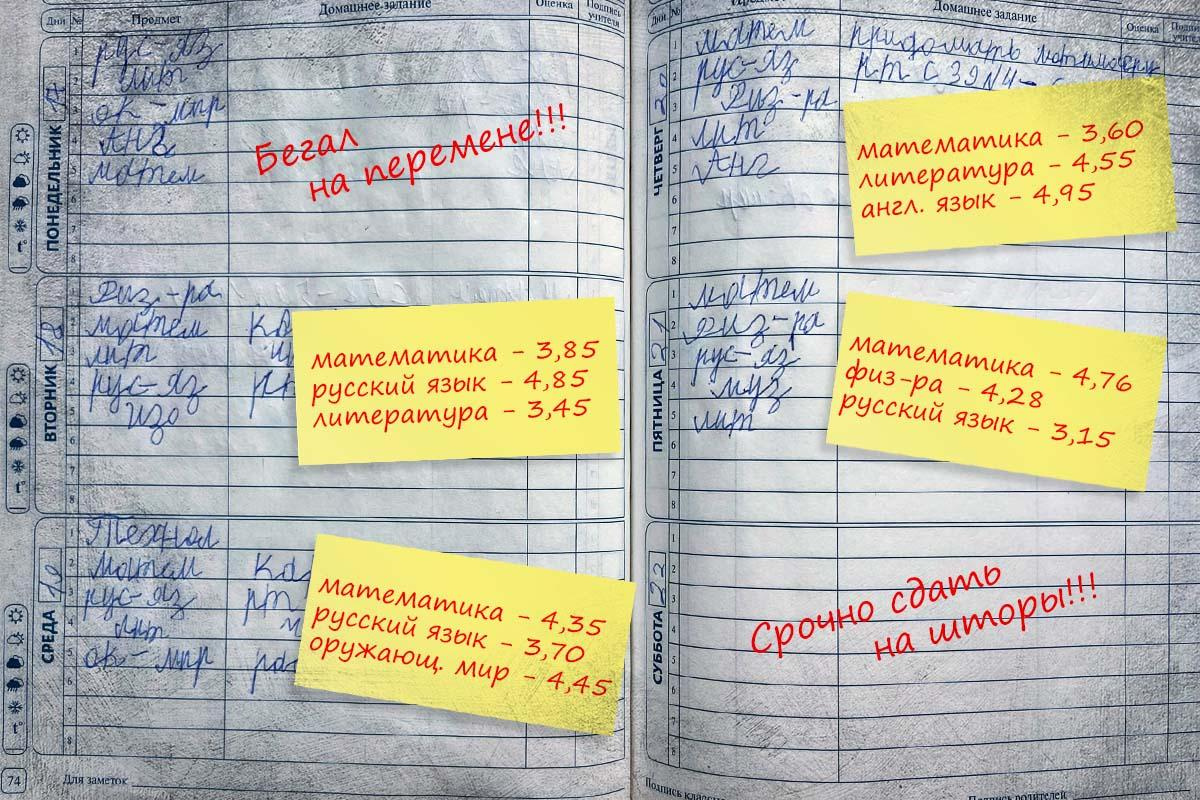 Дни № Предмет Домашнее задание Оценка Подпись учителя
ПОНЕДЕЛЬНИК 17
1 рус яз
2 лит
3 ок-мир
4 Анг
5 матем
6
7
8
Бегал
на перемене!!!
ВТОРНИК 18
1 Физ-ра
2 матем
3 лит
4 рус-яз
5 изо
6
7
8
математика - 3,85
русский язык - 4,85
литература - 3,45
СРЕДА 19
1 Технол
2 матем
3 рус-яз рт
4 лит
5 ок-мир
6
7
8
математика - 4,35
русский язык - 3,70
оружающ. мир - 4,45
74 Для заметок
Дни № Предмет Домашнее задание Оценка
ЧЕТВЕРГ 20
1 матем придомать
2 рус-яз рт с 39 №4
3 Физ-ра
4 лит
5 Анг
6
7
8
математика - 3,60
литература - 4,55
англ. язык - 4,95
ПЯТНИЦА 21
1 матем
2 Физ-ра
3 рус-яз
4 муз
5 лит
6
7
8
математика - 4,76
физ-ра - 4,28
русский язык - 3,15
СУББОТА 22
1
2
3
4
5
6
7
8
Срочно сдать
на шторы!!!
Подпись Подпись родителей